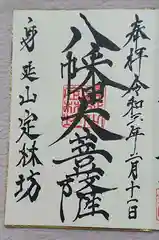 奉拝 令和六年二月十一日
八幡大菩薩
身延山 定林坊